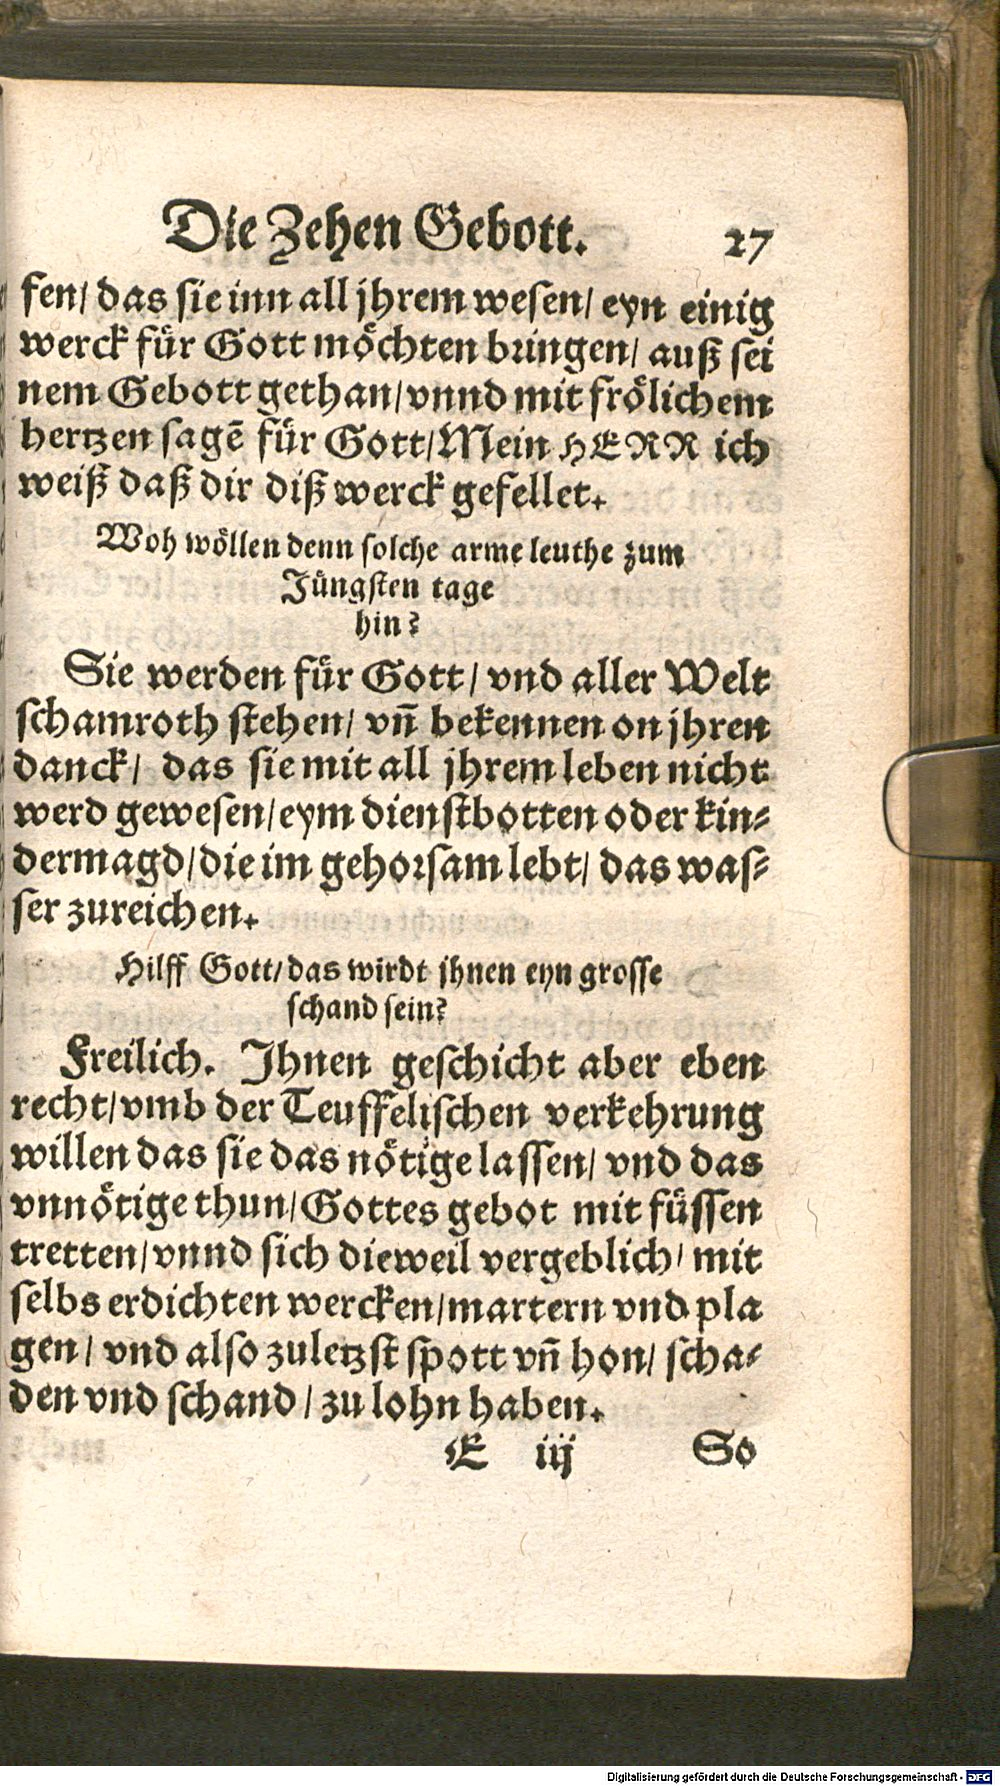 Die Zehen Gebott. 27
fen/ das sie inn all jhrem wesen/ eyn einig
werck für Gott möchten bringen/ auß sei
nem Gebott gethan/vnnd mit frölichem
hertzen sagē für Gott/Mein HERR ich
weiß daß dir diß werck gefellet.
Woh wöllen denn solche arme leuthe zum
Jüngsten tage
hin?
Sie werden für Gott/ vnd aller Welt
schamroth stehen/ vn̄ bekennen on jhren
danck/ das sie mit all jhrem leben nicht
werd gewesen/eym dienstbotten oder kin-
dermagd/die im gehorsam lebt/ das was-
ser zureichen.
Hilff Gott/das wirdt jhnen eyn grosse
schand sein?
Freilich. Jhnen geschicht aber eben
recht/vmb der Teuffelischen verkehrung
willen das sie das nötige lassen/ vnd das
vnnötige thun/Gottes gebot mit füssen
tretten/vnnd sich dieweil vergeblich/ mit
selbs erdichten wercken/martern vnd pla
gen/ vnd also zuletzst spott vn̄ hon/ scha-
den vnd schand/ zu lohn haben.
E iij So
Digitalisierung gefördert durch die Deutsche Forschungsgemeinschaft - DFG